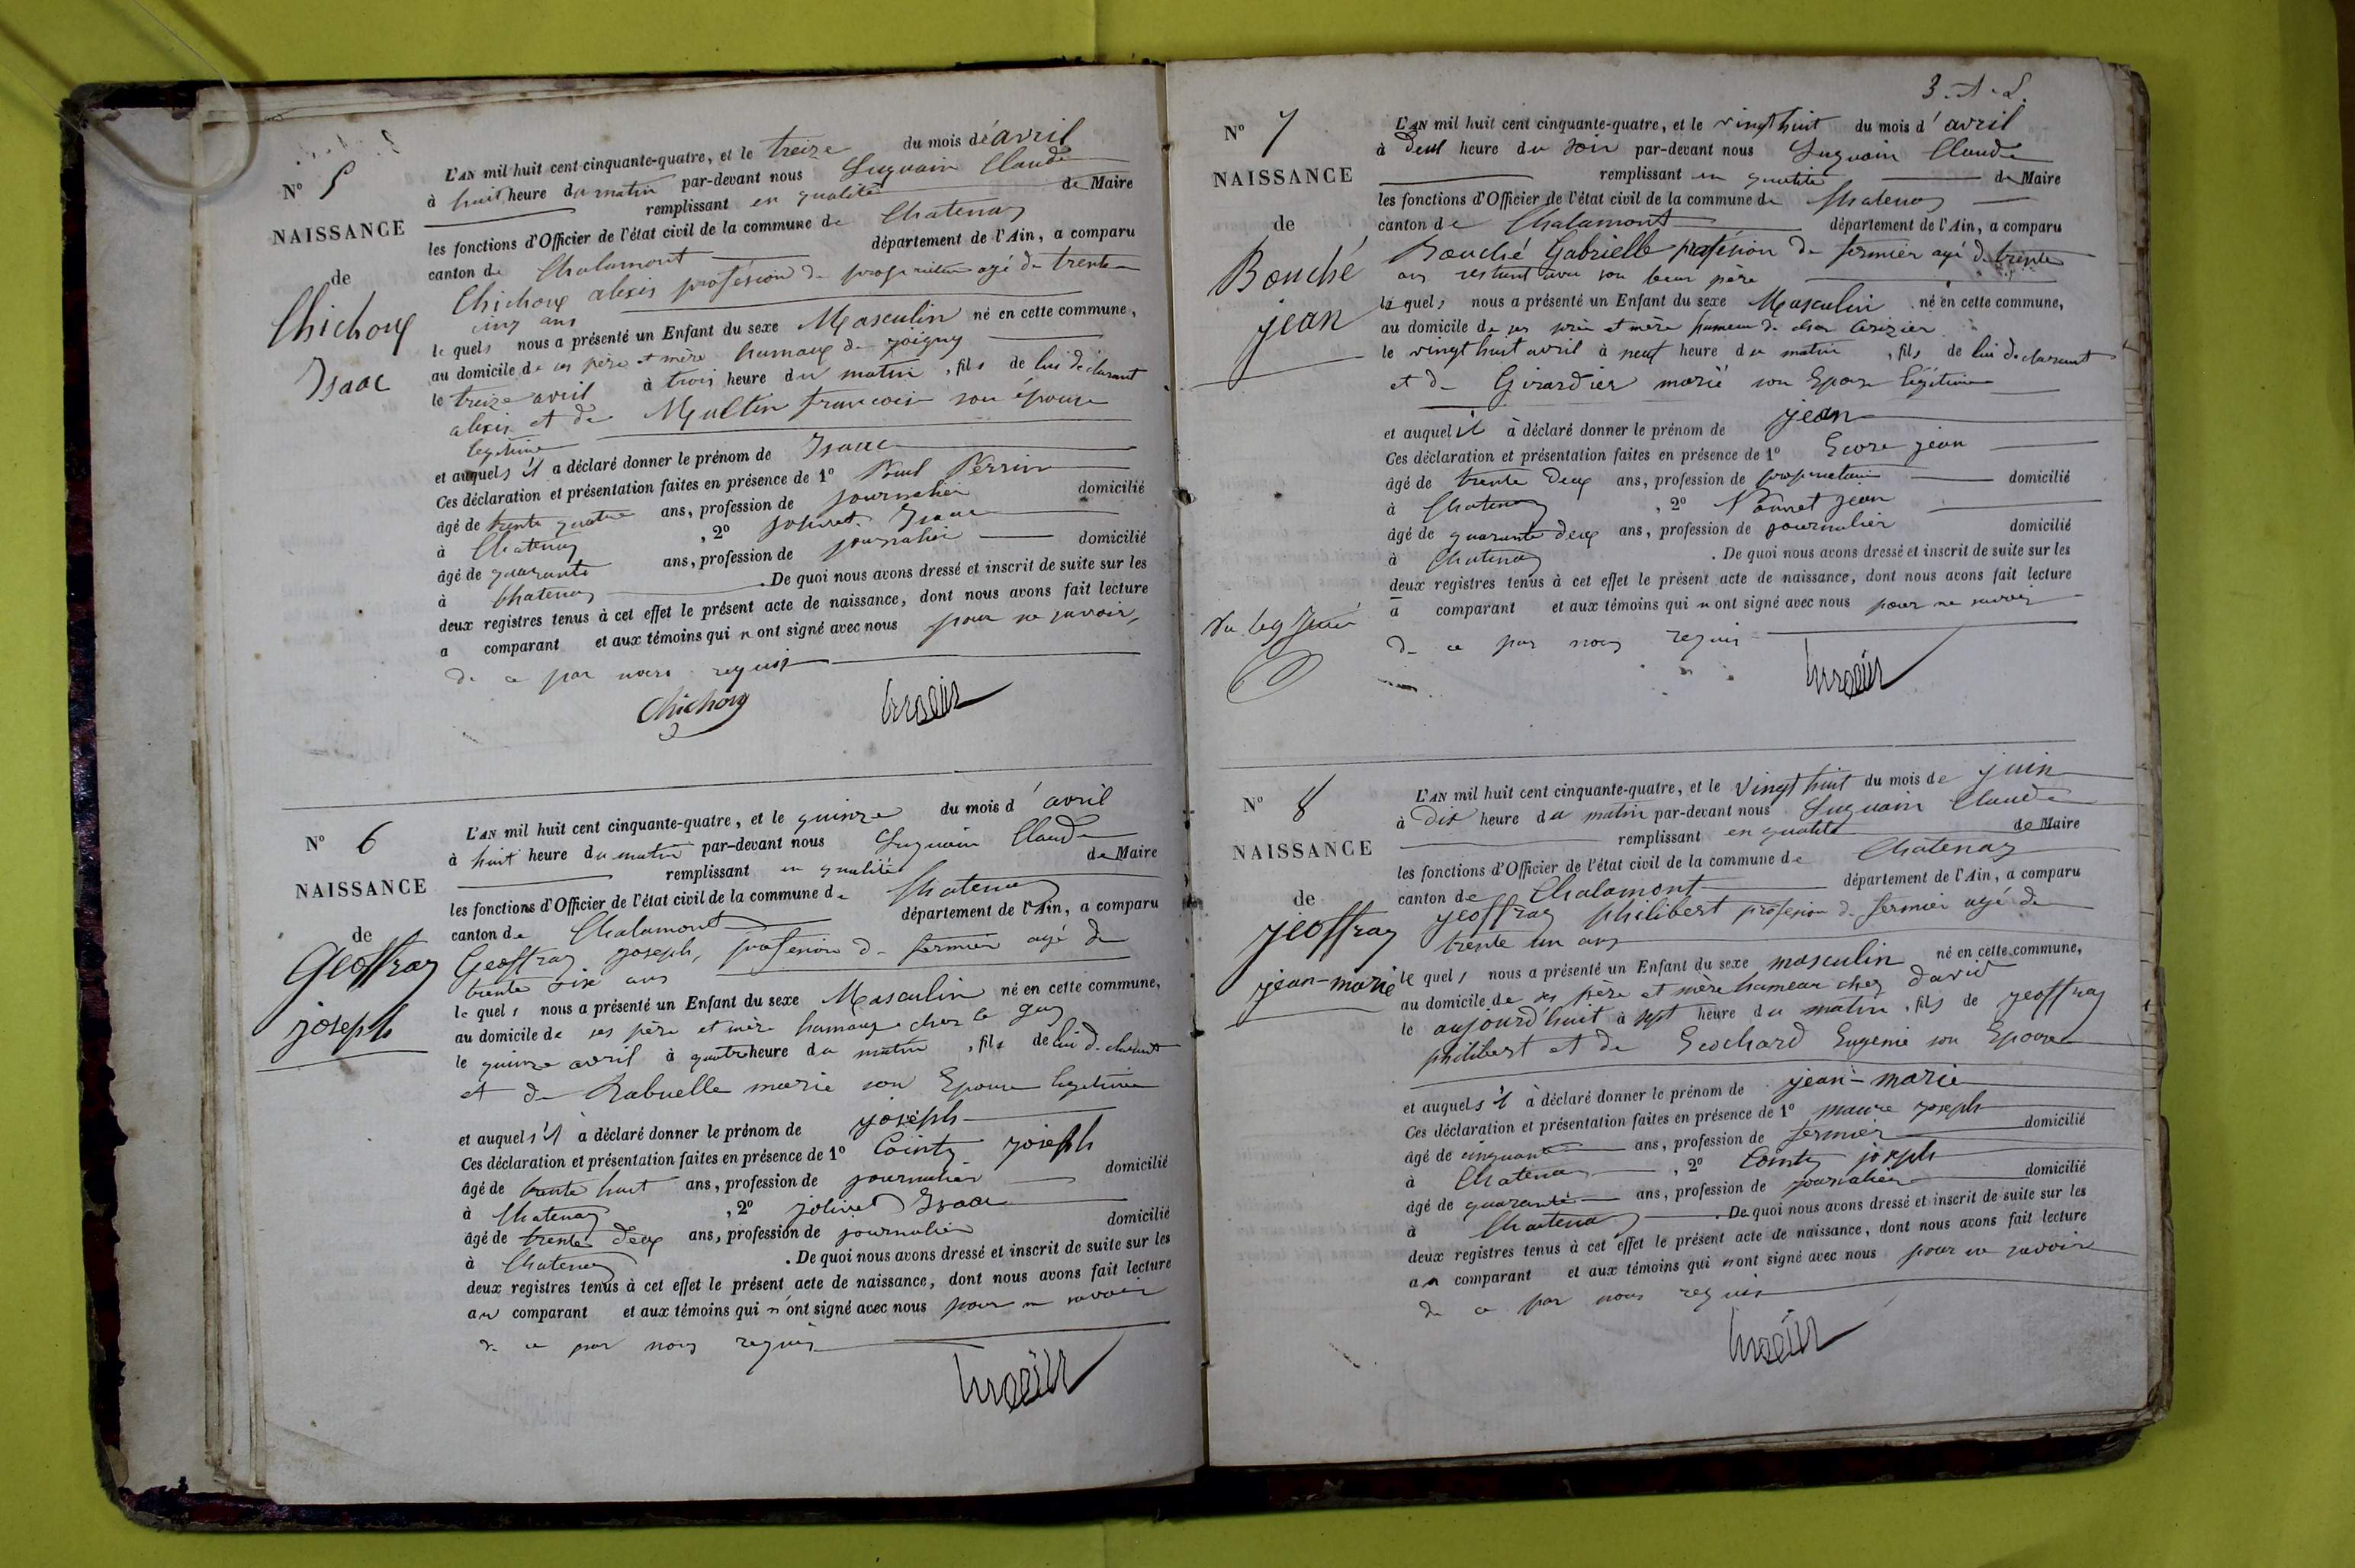 N° 5
NAISSANCE
de
Chichoux
Isaac
L'AN mil huit cent cinquante-quatre, et le treize du mois de avril
à huit heure du matin par-devant nous Luquain Claude
remplissant en qualité de Maire
les fonctions d'Officier de l'état civil de la commune de Chatenay
canton de Chalamont département de l'Ain, a comparu
Chichoux alexis profésion de propriétaire agé de trente
cinq ans
le quel nous a présenté un Enfant du sexe Masculin né en cette commune,
au domicile de ses père et mère hamaux de joigny
le treize avril à trois heure du matin, fils de lui déclarant
alexis et de Multin francoise son épouse
legitime
et auquel s'il a déclaré donner le prénom de Isaac
Ces déclaration et présentation faites en présence de 1° Paul Perrin
âgé de trente quatre ans, profession de journalier domicilié
à Chatenay, 2° Isaac
âgé de quarante ans, profession de journalier domicilié
à Chatenay. De quoi nous avons dressé et inscrit de suite sur les
deux registres tenus à cet effet le présent acte de naissance, dont nous avons fait lecture
a comparant et aux témoins qui n ont signé avec nous pour ne savoir,
de ce par nous requis
Chichoux
N° 6
NAISSANCE
de
Geoffray
joseph
L'AN mil huit cent cinquante-quatre, et le quinze du mois d' avril
à huit heure du matin par-devant nous Luquain Claude
remplissant en qualité de Maire
les fonctions d'Officier de l'état civil de la commune de Chatenay
canton de Chalamont département de l'Ain, a comparu
Geoffray joseph, profession de fermier agé de
trente six ans
le quel nous a présenté un Enfant du sexe Masculin né en cette commune,
au domicile de ses père et mère hamaux chez le guy
le quinze avril à quatre heure du matin, fils de lui déclarant
et de Rabuelle marie son Epouse legitime
et auquel s'il a déclaré donner le prénom de joseph
Ces déclaration et présentation faites en présence de 1° Cointy joseph
âgé de trente huit ans, profession de journalier domicilié
à Chatenay, 2° jolivet Isaac
âgé de trente deux ans, profession de journalier domicilié
à Chatenay. De quoi nous avons dressé et inscrit de suite sur les
deux registres tenus à cet effet le présent acte de naissance, dont nous avons fait lecture
au comparant et aux témoins qui n'ont signé avec nous pour ne savoir
de ce par nous requis
3.
N° 7
NAISSANCE
de
Bouché
jean
L'AN mil huit cent cinquante-quatre, et le vingt huit du mois d' avril
à deux heure du soir par-devant nous Luquain Claude
remplissant en qualité de Maire
les fonctions d'Officier de l'état civil de la commune de Chatenay
canton de Chalamont département de l'Ain, a comparu
Bouché Gabrielle profésion de fermier agé de trente
ans restant avec son beau père
le quel nous a présenté un Enfant du sexe Masculin né en cette commune,
au domicile de ses père et mère hameau de chez
le vingt huit avril à neuf heure du matin, fils de lui declarant
et de Girardier marié son Epouse légitime
et auquel il à déclaré donner le prénom de jean
Ces déclaration et présentation faites en présence de 1° jean
âgé de trente deux ans, profession de propriétaire domicilié
à Chatenay, 2° Ponnet jean
âgé de quarante deux ans, profession de journalier domicilié
à Chatenay. De quoi nous avons dressé et inscrit de suite sur les
deux registres tenus à cet effet le présent acte de naissance, dont nous avons fait lecture
a comparant et aux témoins qui n ont signé avec nous pour ne savoir
de ce par nous requis
N° 8
NAISSANCE
de
jeoffray
jean-marie
L'AN mil huit cent cinquante-quatre, et le vingt huit du mois de juin
à dix heure du matin par-devant nous Luquain Claude
remplissant en qualité de Maire
les fonctions d'Officier de l'état civil de la commune de Chatenay
canton de Chalamont département de l'Ain, a comparu
jeoffray philibert profésion de fermier agé de
trente un ans
le quel nous a présenté un Enfant du sexe masculin né en cette commune,
au domicile de ses père et mère hameau chez david
le aujourd'huit à sept heure du matin, fils de jeoffray
philibert et de Geochard Eugénie son Epouse
et auquel s'il à déclaré donner le prénom de jean-marie
Ces déclaration et présentation faites en présence de 1° maure joseph
âgé de cinquante ans, profession de fermier domicilié
à Chatenay, 2° Cointy joseph
âgé de quarante ans, profession de journalier domicilié
à Chatenay. De quoi nous avons dressé et inscrit de suite sur les
deux registres tenus à cet effet le présent acte de naissance, dont nous avons fait lecture
au comparant et aux témoins qui n ont signé avec nous pour ne savoir
de ce par nous requis